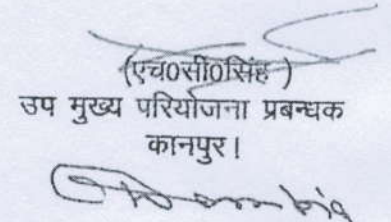 (एच0सी0सिंह )
उप मुख्य परियोजना प्रबन्धक
कानपुर।